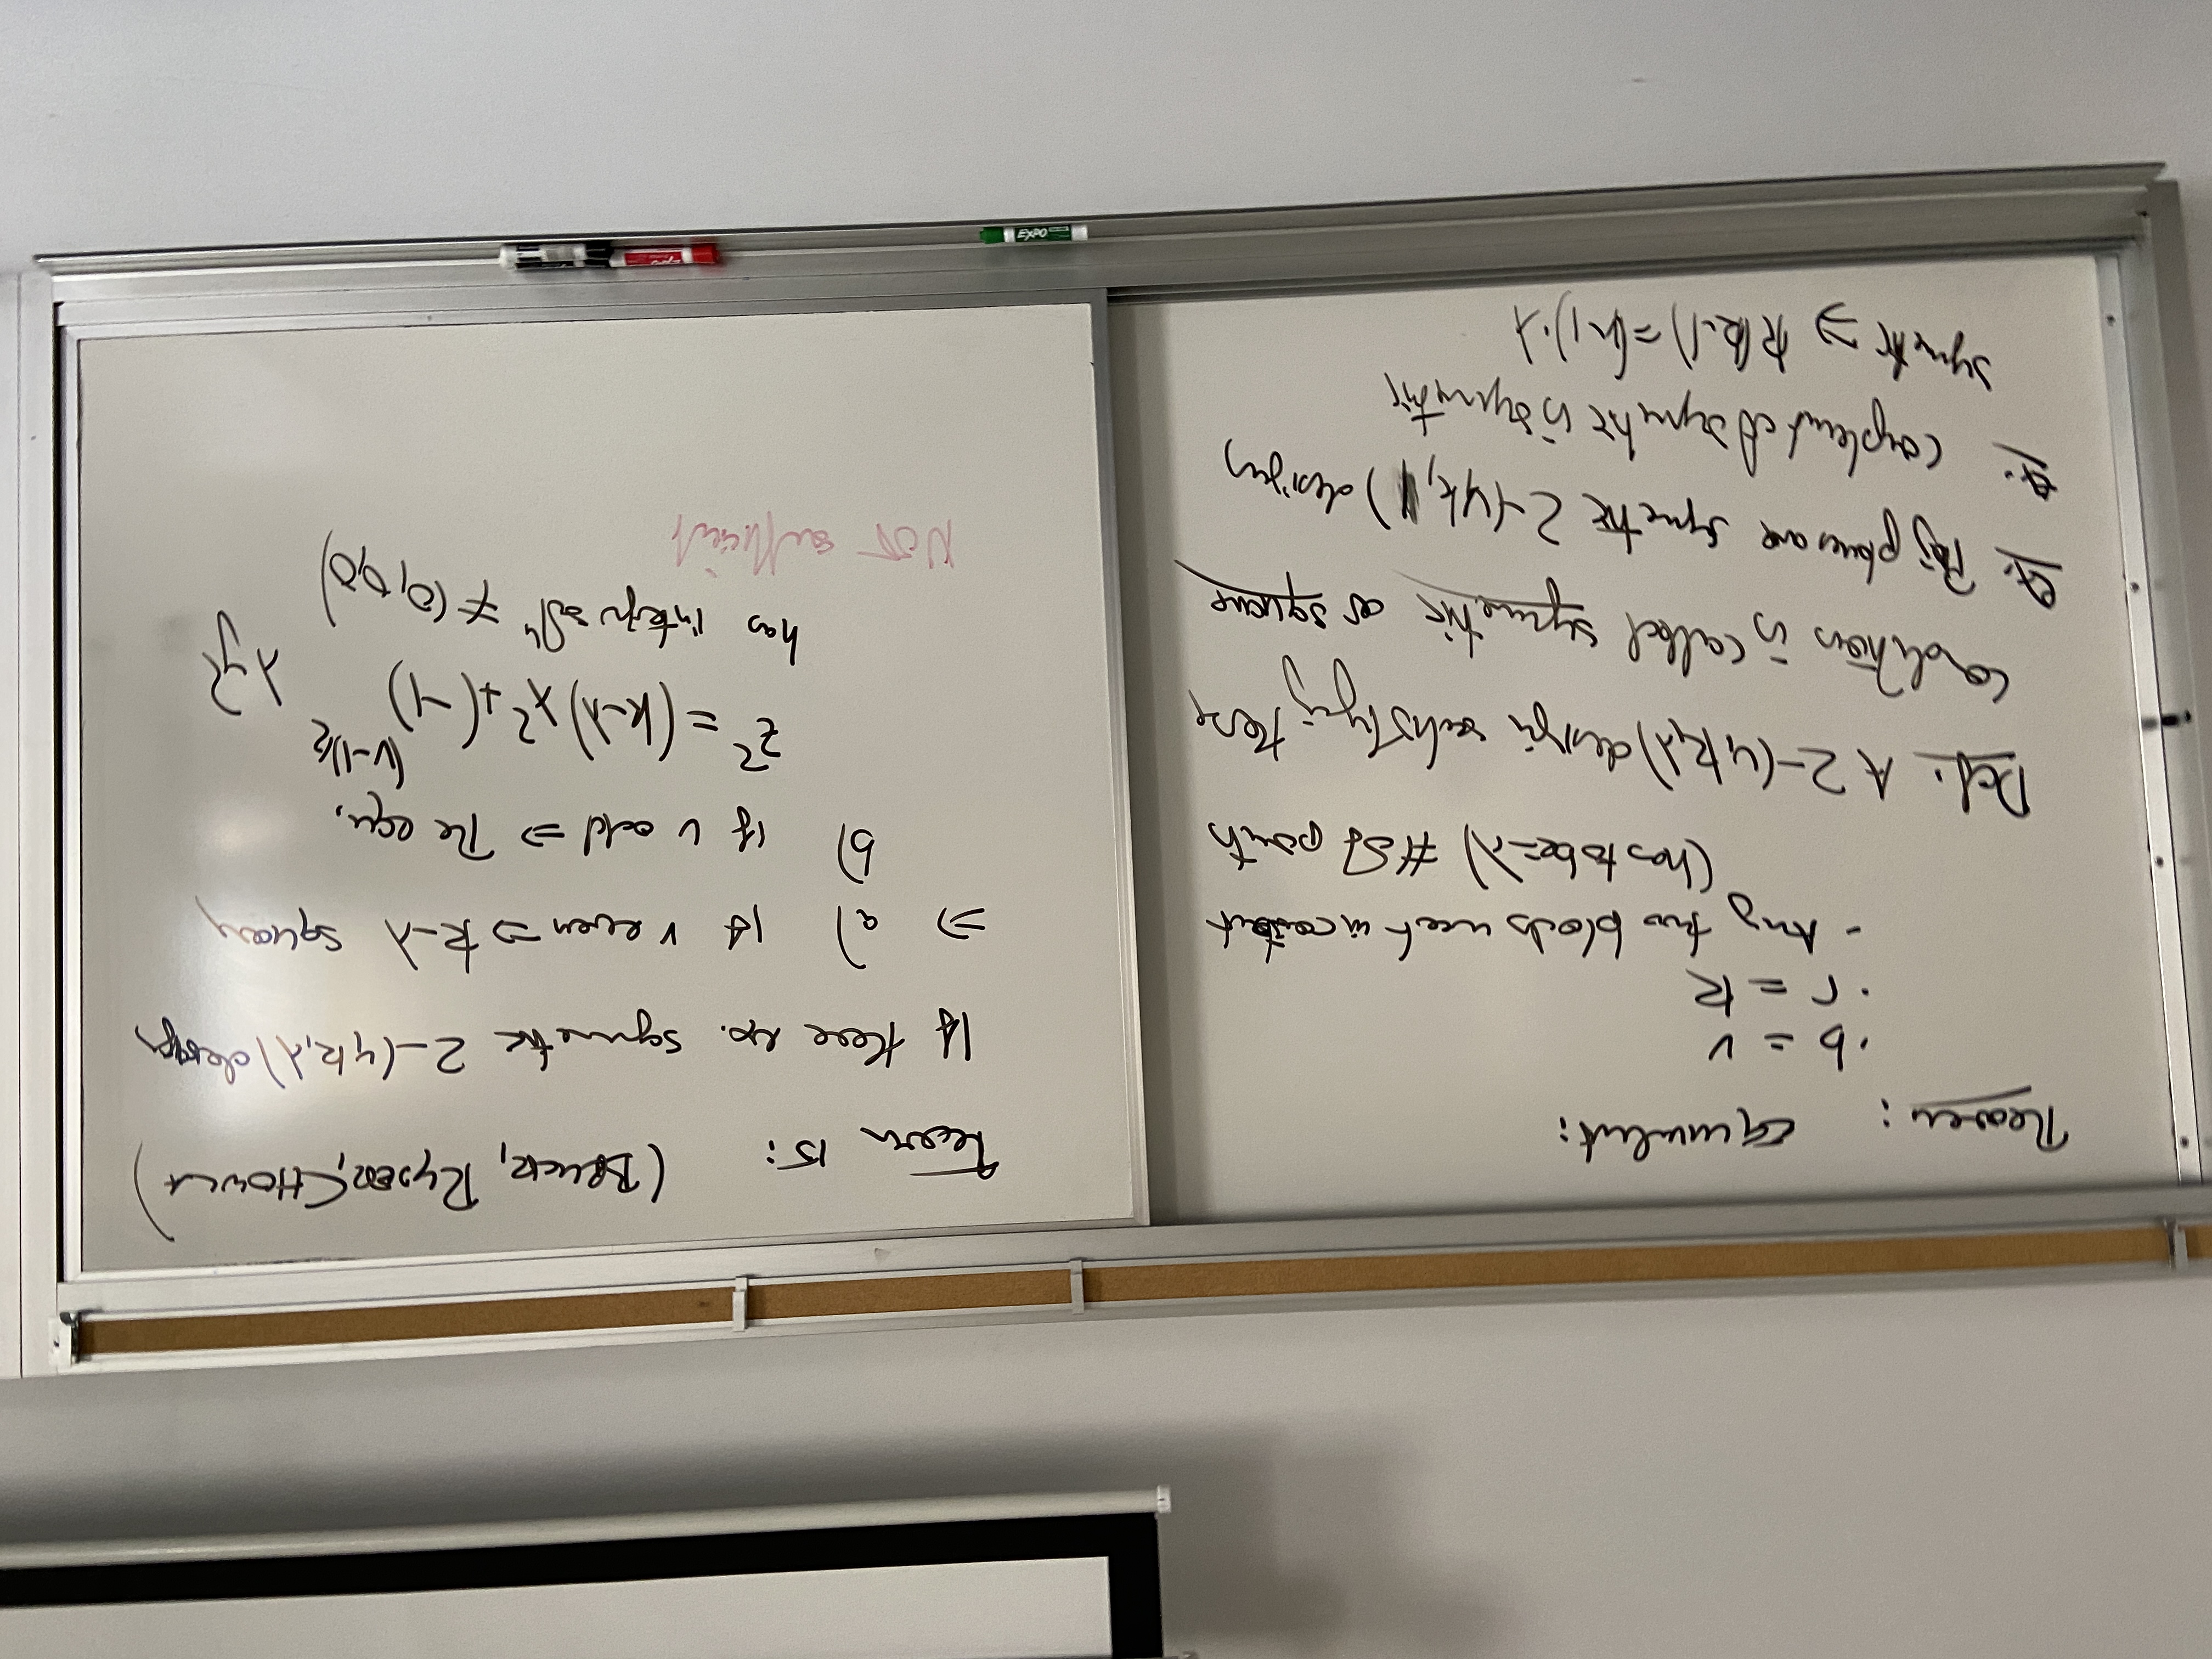 Theorem: equivalent:
· b = v
· r = k
- Any two blocks meet in constant
(has to be = λ) # of points
Def: A 2-(v,k,λ) design satisfying these
conditions is called symmetric or square
Ex: Proj planes are symmetric 2-(v,k,1) designs
Ex: Complement of symmetric is symmetric
symmetric ⇒ k(k-1) = (v-1)·λ
Theorem 15: (BRUCK, RYSER, CHOWLA)
If there ex. symmetric 2-(v,k,λ) design
⇒ a) if v even ⇒ k-λ square
b) if v odd ⇒ the equ.
z² = (k-λ) x² + (-1)^(v-1)/2 λy²
has integer sol'n ≠ (0,0,0)
NOT sufficient
EXPO